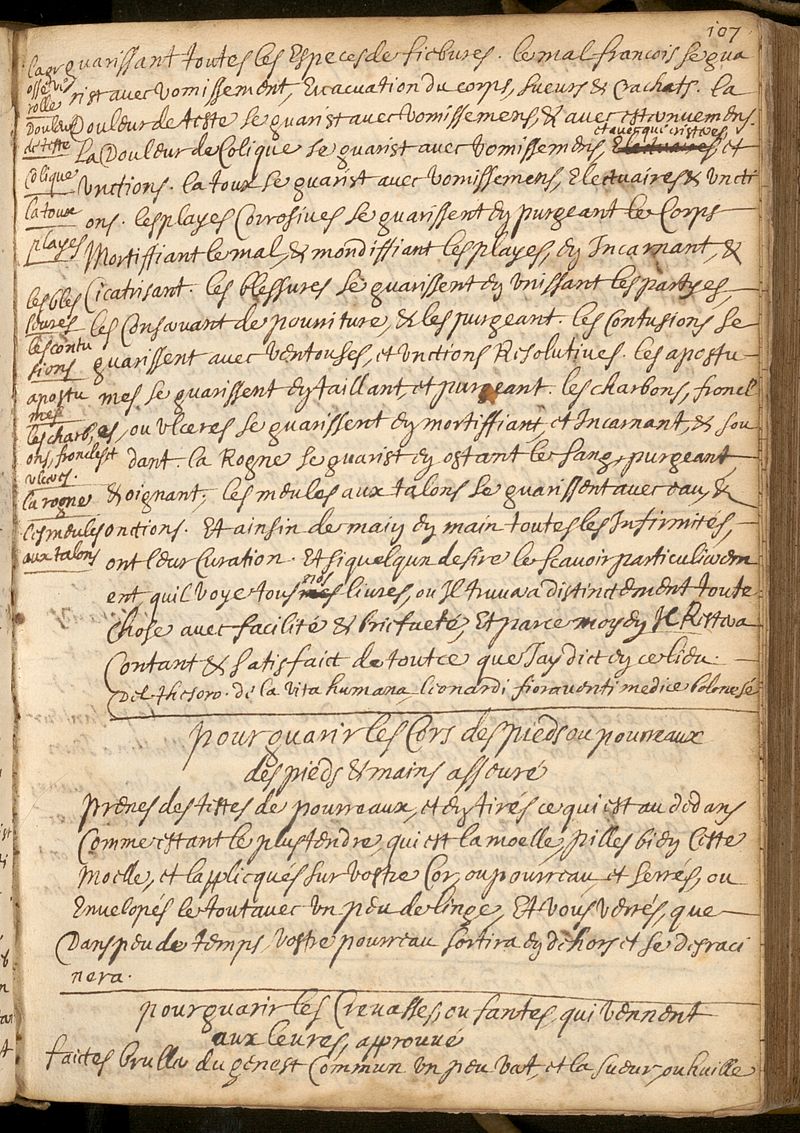 107
guarissant toutes les Especes de fiebures. le mal francois se gua
la gr
osse ve
rolle
rist avec vomissement, Evacuation du corps, sueurs & Crachats. la
Douleur de teste se guarist avec vomissemens, & avec
douleur
de teste
La Douleur de Colique se guarist avec vomissemens, Electuaires et
Colique
Unctions. la toux se guarist avec vomissemens, Electuaires & Uncti
la toux
ons. les playes Corrosives se guarissent en purgeant le Corps
playes
Mortiffiant le mal, & mondiffiant les playes, en Incarnant, &
les bles
Cicatrisant. les blessures se guarissent en Unissant les partyes,
seures
les Conservant de pourriture, & les purgeant. les Contusions se
les contu
sions
guarissent avec ventouses, et Unctions Resolutives. les apostu
apostu
mes
mes se guarissent en taillant, et purgeant. les charbons, froncl
les charb,
es, ou Ulceres se guarissent en mortiffiant, et Incarnant, & sou
ons, froncles et
ulceres.
dant. la Rogne se guarist en ostant le sang, purgeant,
la rogne
& oignant; les meules aux talons se guarissent avec eau, &
les meules
aux talons
onctions. Et ainsin de main en main toutes les Infirmités,
ont leur Curation. Et si quelqun desire le scavoir particulierem
ent quil voye tous nos livres, ou Il truvera distinctement toute
chose avec facilité & briefueté, Et par ce moyen Il Restera
Contant & satisfaict de tout ce que Jay dict en ce lieu.
Del thesoro. de la vita humana, lionardi fioraventi medice bolonese
pour guarir les Cors des pieds ou pourreaux
des pieds & mains asseuré
prenes des testes de pourreaux, et en tirés ce qui est au dedans
Comme estant le plus tendre, qui est la moelle, pilles bien Cette
Moelle, et lapplicqués sur vostre Cor, ou pourreau, et serrés, ou
Envelopés le tout avec un peu de linge, Et vous verrés, que
Dans peu de temps, vostre pourreau sortira en dehors et se desraci
nera.
pour guarir les Crevasses, ou fantes, qui viennent
aux leures, approuvé
faictes bruller du genest Commun un peu vert, et la sueur, ou huille